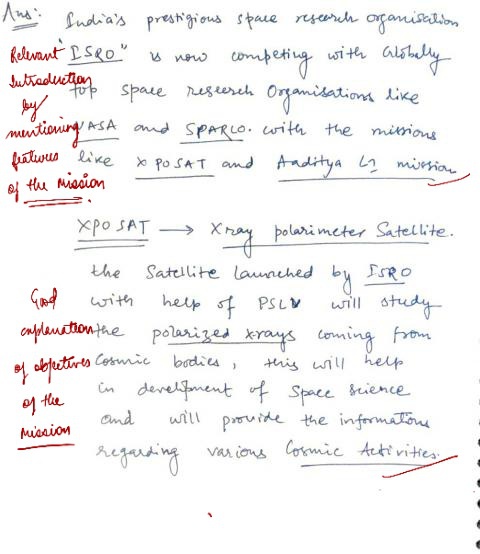 Ans: India's prestigious space research organisation
"ISRO" is now competing with Globally
top space research Organisations like
NASA and SPARCO. with the missions
like XPOSAT and Aaditya L1 mission
Relevant
Introduction
by
mentioning
features
of the mission
XPOSAT → Xray polarimeter Satellite.
the Satellite launched by ISRO
with help of PSLV will study
the polarized x-rays coming from
Cosmic bodies, this will help
in development of Space science
and will provide the informations
regarding various Cosmic Activities.
Good
explanation
of objectives
of the
Mission